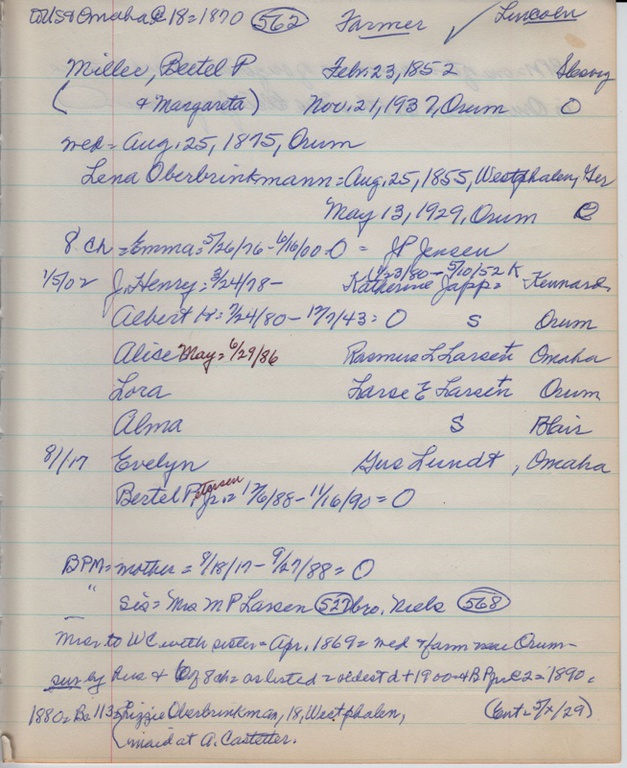 to US & Omaha @ 18 = 1870 562 Farmer ✓ Lincoln
Miller, Bertel P Feb. 23, 1852 Slesvig
( & Margareta) Nov. 21, 1937, Orum O
med = Aug. 25, 1875, Orum
Lena Oberbrinkmann = Aug. 25, 1855, Westphalen, Ger
May 13, 1929, Orum
8 ch = Emma = 5/26/76 - 6/16/00 - O = J P Jensen
1/23/80 - 5/10/52 K
1/5/02 J. Henry = 3/24/78 - Katherine Japp = Kennard
Albert H = 7/24/80 - 12/7/43 = O S Orum
Alise May = 6/29/86 Rasmus L Larsen Omaha
Lora Larse E Larsen Orum
Alma S Blair
8/1/17 Evelyn Gus Lundt, Omaha
Bertel Petersen Jr. = 12/6/88 - 11/16/90 = O
BPM = mother = 9/18/17 - 9/27/88 = O
" sis = Mrs M P Larsen 527 bro. Niels 568
to WC with sister = Apr. 1869 = med & farm near Orum -
sur by Lena & 6 of 8 ch = as listed = oldest d + 1900 = & B P Jr @ 2 = 1890.
1880 = Be 113 = Lizzie Oberbrinkman, 18, Westphalen, (Ent = 5/x/29)
maid at A. Castetter.